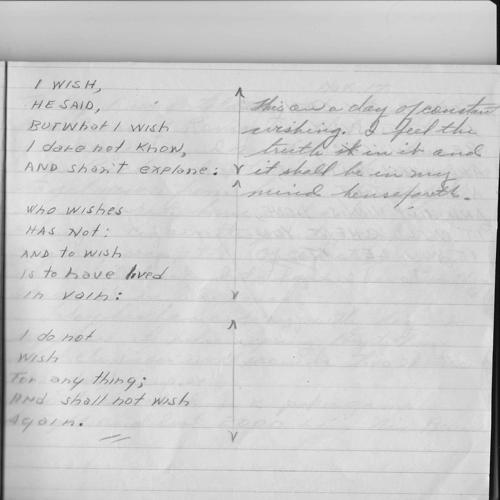 I WISH,
HE SAID,
BUT What I WISH
I dare not KNOW,
AND shan't explane:
WHO WISHES
HAS NOT:
AND to WISH
IS to have loved
IN VAIN:
I do not
WISH
For any thing;
AND shall not WISH
Again.
This on a day of constan
wishing. I feel the
truth in it and
it shall be in my
mind henseforth.